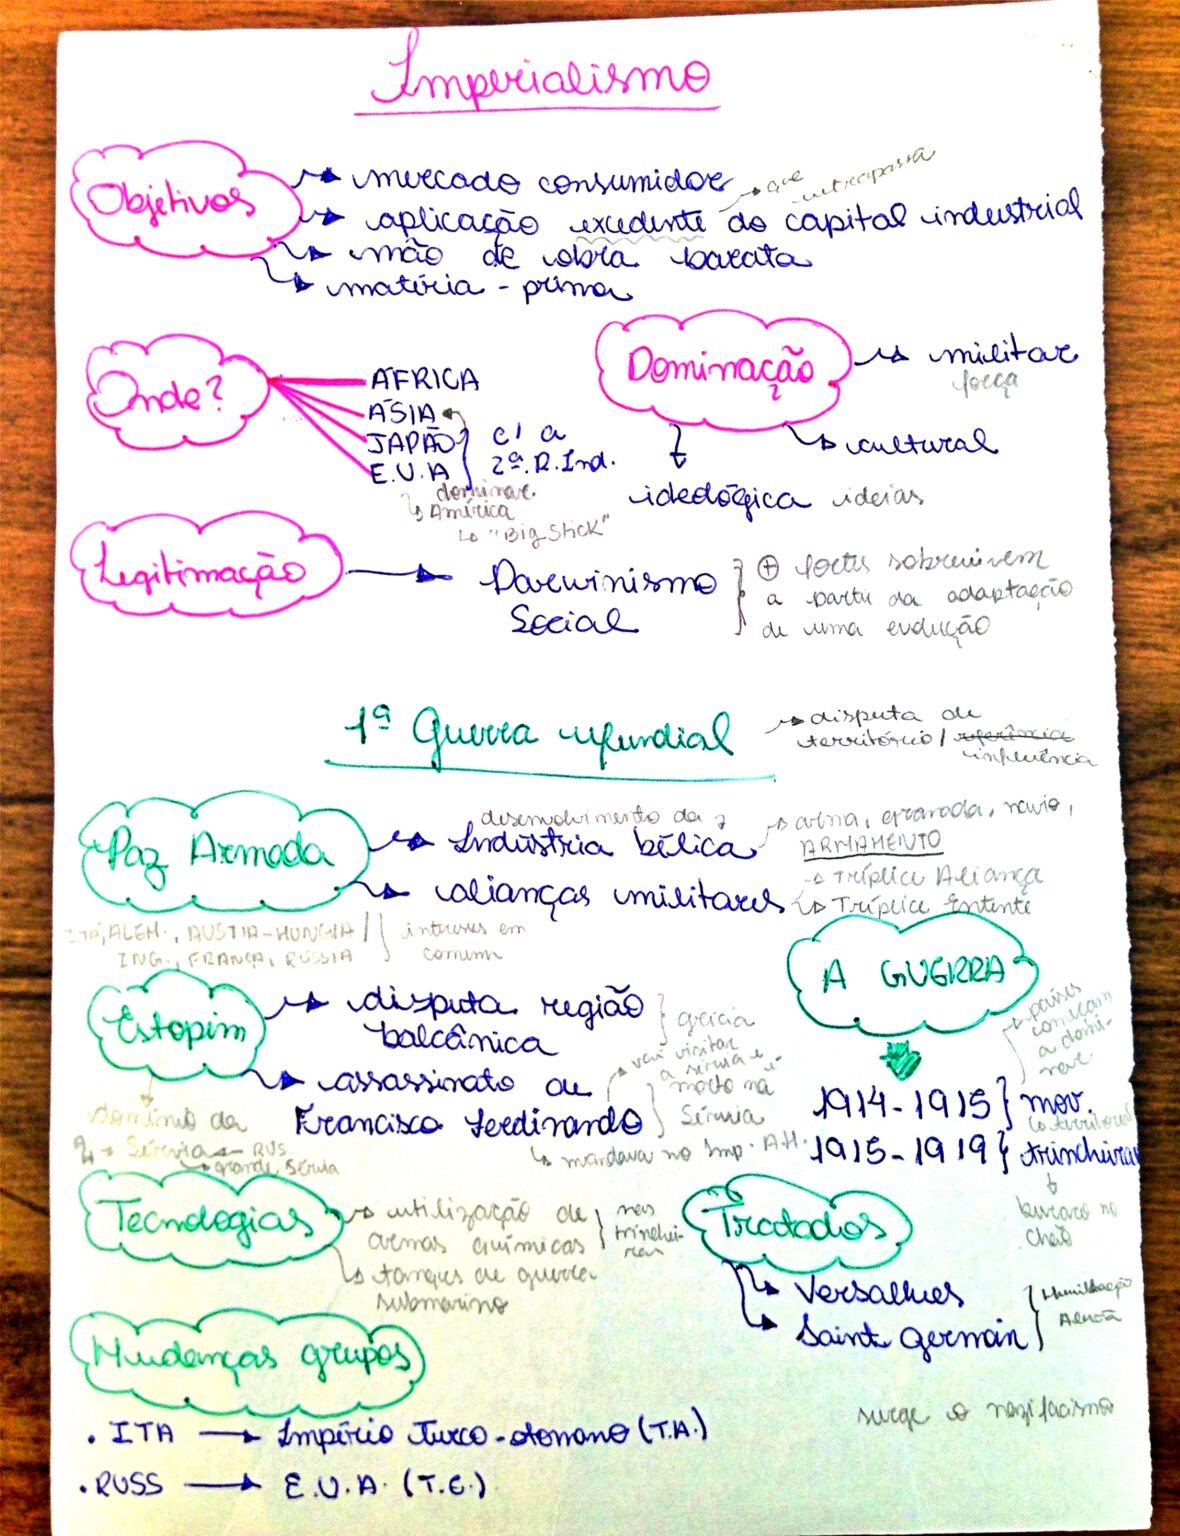 Imperialismo
Objetivos
mercado consumidor
que ultrapassa
aplicação excedente do capital industrial
mão de obra barata
matéria-prima
Onde?
ÁFRICA
ÁSIA
JAPÃO
E.U.A
c/ a
2ª.R.Ind.
dominar
América
"Big Stick"
Dominação
militar
força
cultural
ideológica ideias
Legitimação
Darwinismo
Social
⊕ fortes sobrevivem
a partir da adaptação
de uma evolução
1ª Guerra Mundial
disputa de
território/ referência
influência
Paz Armada
desenvolvimento da
Indústria bélica
arma, granada, navio,
ARMAMENTO
alianças militares
Tríplice Aliança
Tríplice Entente
ITA, ALEM., AUSTIA-HUNGRIA //
ING., FRANÇA, RÚSSIA
interesses em
comum
Estopim
disputa região
balcânica
grécia
assassinato de
Francisco Ferdinando
vai visitar
a sérvia e é
morto na
Sérvia
mandava no Imp. A.H.
domínio da
Sérvia RUS.
grande Sérvia
A GUERRA
países
começam
a domi-
nar
1914-1915 } mov.
territórios
1915-1919 } trincheiras
buraco no
chão
Tecnologias
utilização de
armas químicas
nas
trinchei-
ras
tanques de guerra
submarino
Tratados
Versalhes
Saint Germain
Humilhação
Alemã
surge o nazifacismo
Mudanças grupos
. ITA → Império Turco-otomano (T.A.)
. RUSS → E.U.A. (T.E.)